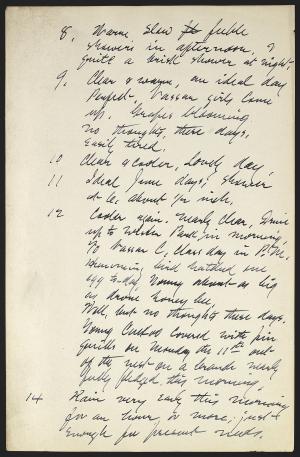 8, Warm, slow feeble
showers in afternoon, &
quite a brisk shower at night.
9, Clear & warm, an ideal day
Perfect. Vassar girls come
up. Grapes blooming
no thoughts, these days.
Easily tired.
10 Clear & cooler, Lovely day,
11 Ideal June days; shower
at 6, about ¼ inch.
12 Cooler again. Nearly clear, Drive
up to West Park, in morning,
To Vassar C, Class day in P.M.
Humming bird hatched one
egg to-day, Young about as big
as drone honey bee.
Well, but no thoughts these days.
Young Cuckoo covered with pin
quills on Monday the 11th out
of the nest on a branch nearly
fully fledged this morning.
14 Rain very early this morning
for an hour or more; just
enough for present needs.